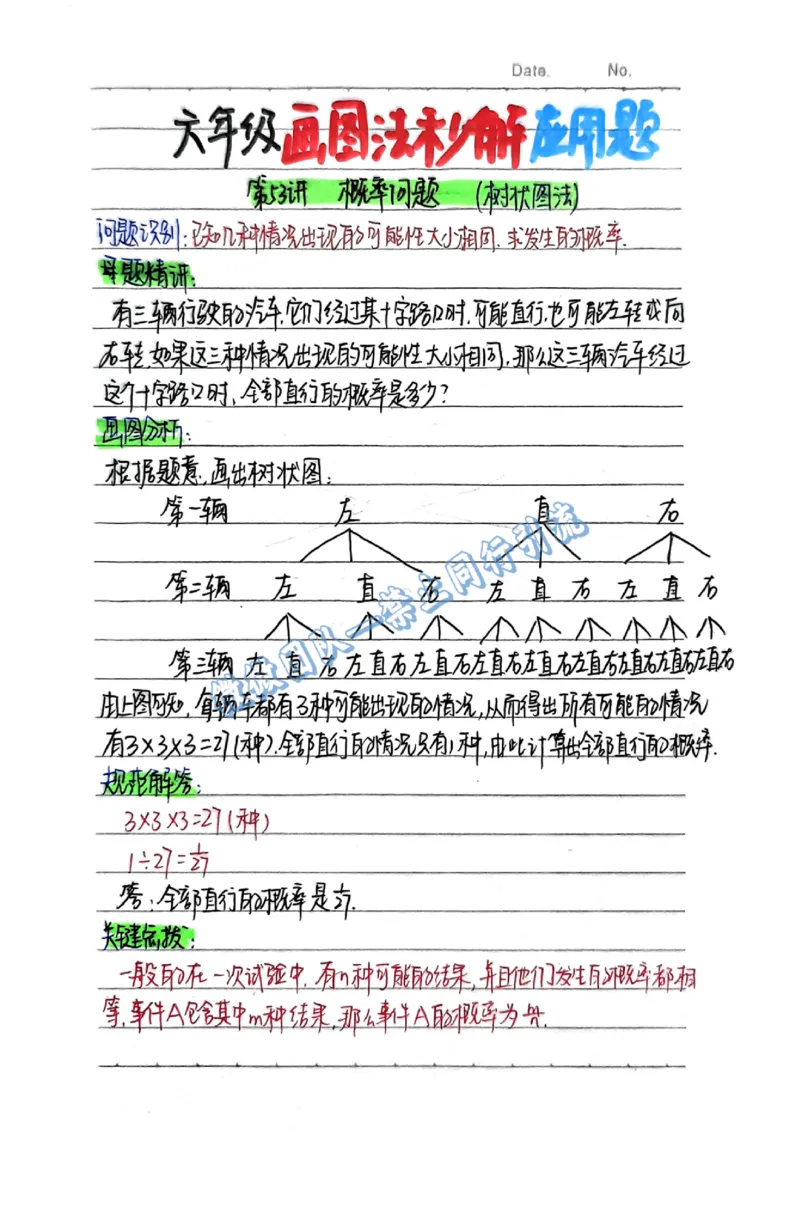 Date. No.
六年级画图法秒解应用题
第53讲 概率问题 (树状图法)
问题识别:已知几种情况出现的可能性大小相同.求发生的概率.
母题精讲:
有三辆行驶的汽车,它们经过某十字路口时,可能直行,也可能左转或向
右转.如果这三种情况出现的可能性大小相同,那么这三辆汽车经过
这个十字路口时,全部直行的概率是多少?
画图分析:
根据题意,画出树状图:
第一辆 左 直 右
第二辆 左 直 右 左 直 右 左 直 右
第三辆 左 直 右 左直右左直右左直右左直右左直右左直右左直右左直右
由上图可知,每辆车都有3种可能出现的情况,从而得出所有可能的情况
有3×3×3=27(种).全部直行的情况只有1种,由此计算出全部直行的概率.
规范解答:
3×3×3=27(种)
1÷27=1/27
答:全部直行的概率是1/27.
关键点拨:
一般的在一次试验中,有n种可能的结果,并且他们发生的概率都相
等,事件A包含其中m种结果,那么事件A的概率为m/n.